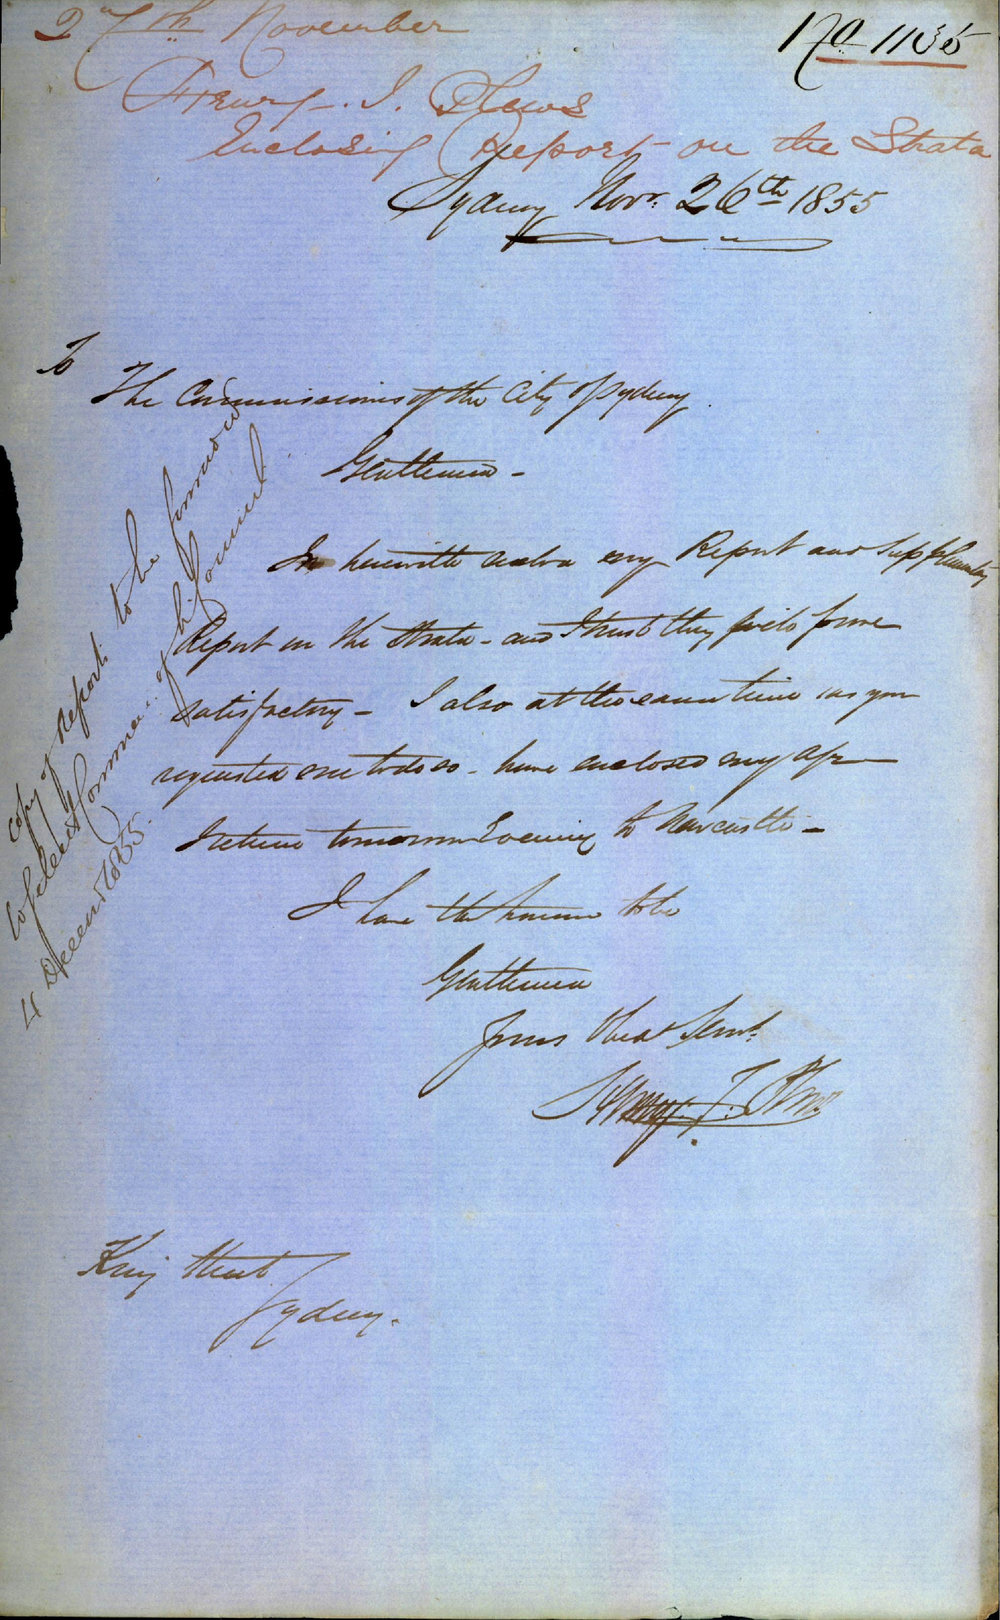 27th November
No 1135
Henry T. Plews
Enclosing Report on the Strata
Sydney Novr. 26th 1855
To
The Commissioners of the City of Sydney.
Gentlemen -
I herewith enclose my Report and Supplementary
Report on the Strata - and I trust they will prove
satisfactory - I also at the same time as you
requested me to do so - have enclosed my
I return tomorrow Evening to Newcastle -
I have the honor to be
Gentlemen
Yours Obedt Servt.
Henry. T. Plews
King Street
Sydney.
Copy of Report to be forwarded
to Select Committee of
4 December 1855.